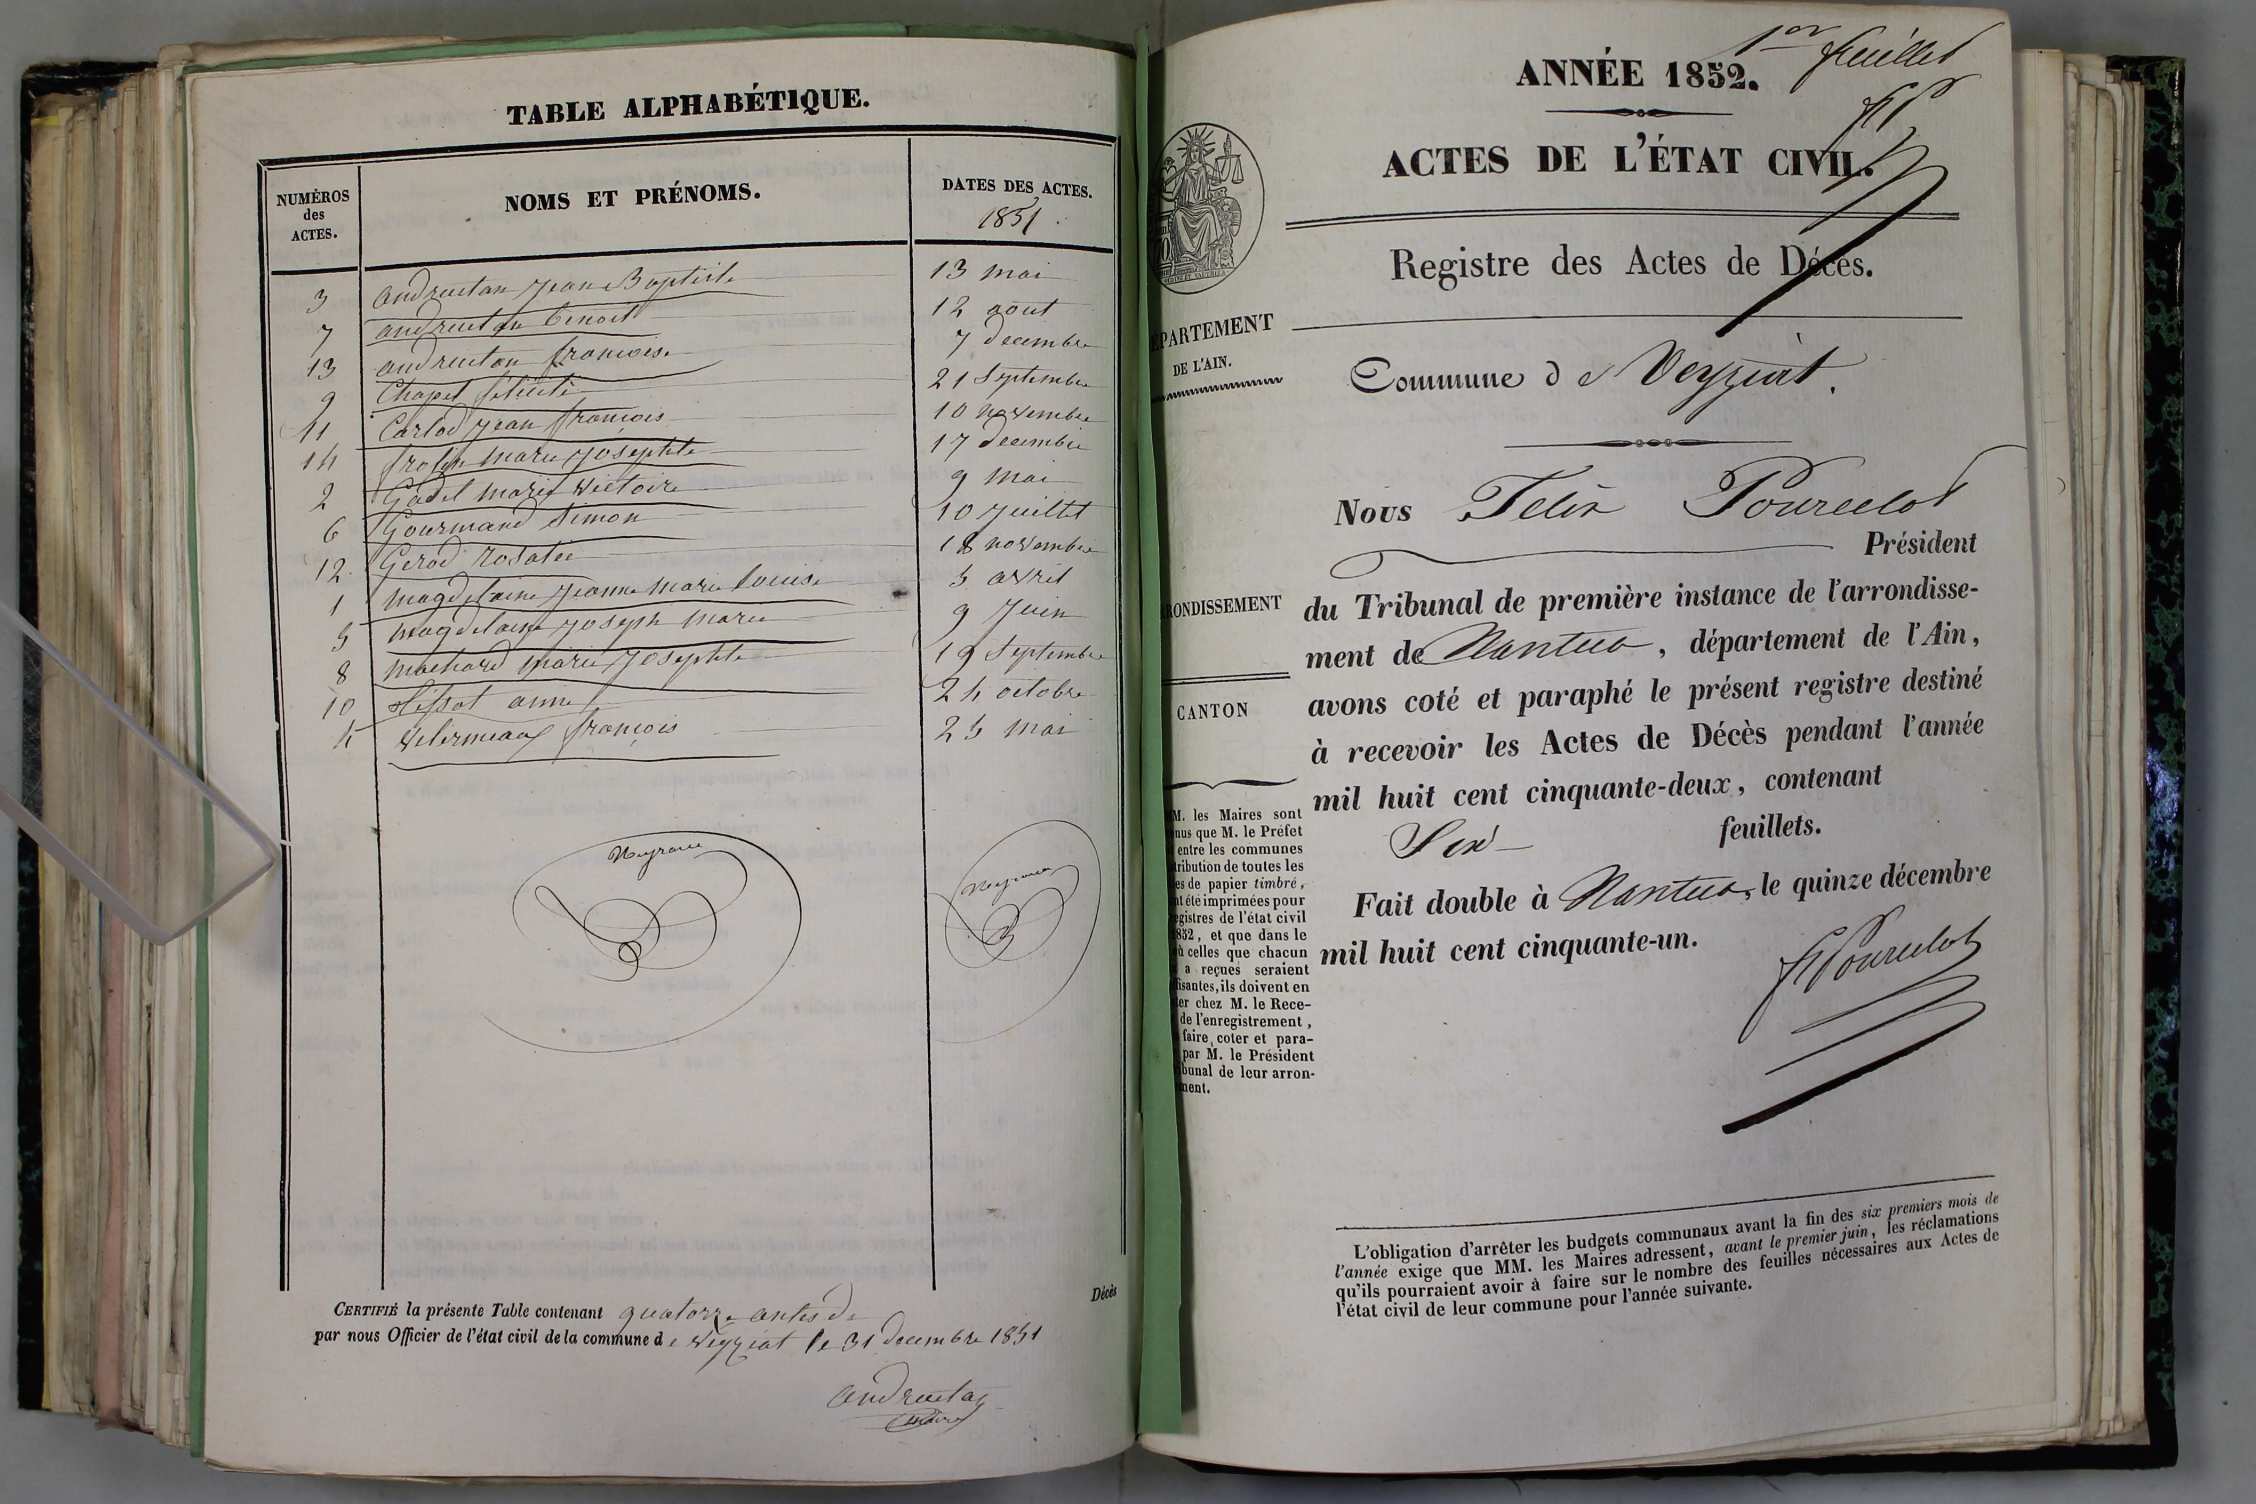 TABLE ALPHABÉTIQUE.
NUMÉROS des ACTES.
NOMS ET PRÉNOMS.
DATES DES ACTES.
1851
3 andruetan jean Baptiste 13 mai
7 andruetan benoit 12 aout
13 andruetan françois 7 decembre
9 Chapel félicité 21 Septembre
11 Carlod jean françois 10 novembre
14 marie josephte 17 decembre
2 Godet marie victoire 9 mai
6 Gourmand Simon 10 juillet
12 Gerod rosalie 18 novembre
1 magdelaine jeanne marie louise 5 avril
5 magdelaine joseph marie 9 juin
8 machard marie josephte 19 Septembre
10 anne 24 octobre
4 françois 25 mai
Décès
CERTIFIÉ la présente Table contenant quatorze actes de
par nous Officier de l'état civil de la commune de veyziat le 31 decembre 1851
andruetan
maire
1er feuillet
FP
ANNÉE 1852.
ACTES DE L'ÉTAT CIVIL.
Registre des Actes de Décès.
ÉPARTEMENT
DE L'AIN.
Commune de Veyziat.
Nous Félix Pourcelot
Président
RONDISSEMENT
du Tribunal de première instance de l'arrondisse-
ment de Nantua, département de l'Ain,
avons coté et paraphé le présent registre destiné
CANTON
à recevoir les Actes de Décès pendant l'année
mil huit cent cinquante-deux, contenant
Six feuillets.
Fait double à Nantua, le quinze décembre
mil huit cent cinquante-un.
FPourcelot
M. les Maires sont
nus que M. le Préfet
entre les communes
tribution de toutes les
es de papier timbré,
nt été imprimées pour
egistres de l'état civil
852, et que dans le
ù celles que chacun
a reçues seraient
fisantes, ils doivent en
ter chez M. le Rece-
de l'enregistrement,
faire coter et para-
par M. le Président
ibunal de leur arron-
ment.
L'obligation d'arrêter les budgets communaux avant la fin des six premiers mois de
l'année exige que MM. les Maires adressent, avant le premier juin, les réclamations
qu'ils pourraient avoir à faire sur le nombre des feuilles nécessaires aux Actes de
l'état civil de leur commune pour l'année suivante.